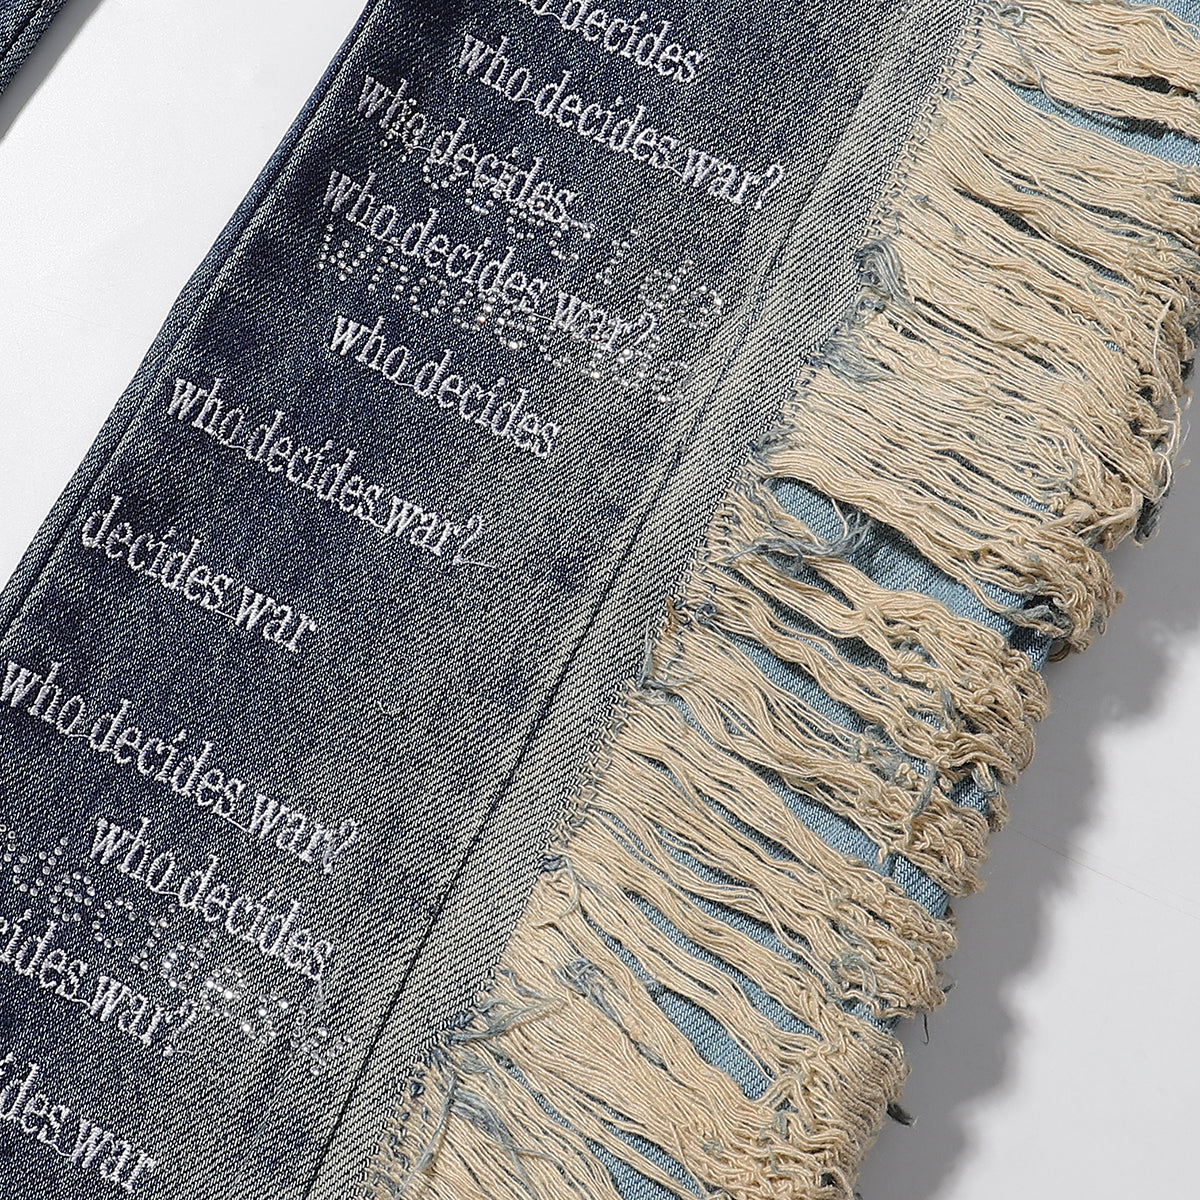 decides
who decides war?
who decides
who decides war?
who decides
who decides war?
decides war
who decides war?
who decides
decides w
cides war?
ides war